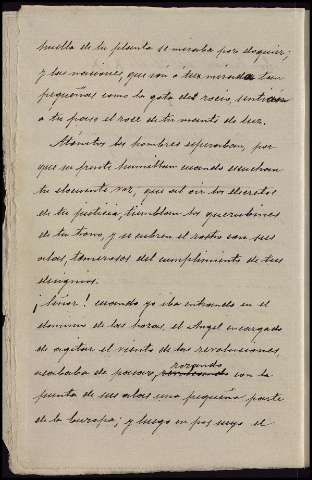 huella de tu planta se miraba por doquier;
y las naciones, que són á tus miradas tan
pequeñas como la gota del rocio, sentirán
a tu paso el roce de tu manto de luz.
Atónitos los hombres esperaban, por
que su frente humillan cuando escuchan
tu elocuente voz, que al oir los decretos
de tu justicia, tiemblan los querubines
de tu trono, y se cubren el rostro con sus
alas, temerosos del cumplimiento de tus
designios.
¡Señor! cuando yo iba entrando en el
dominio de las horas, el Angel encargado
de agitar el viento de las revoluciones
rozando
acababa de pasar, con la
punta de sus alas una pequeña parte
de la Europa; y luego en pos suyo el